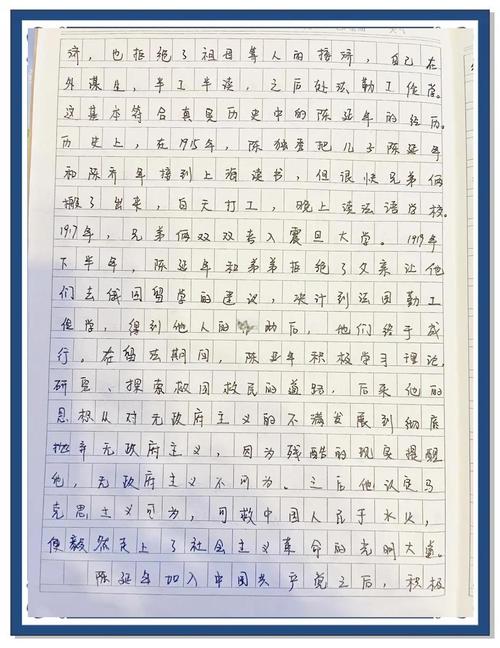 济，也拒绝了祖母等人的接济，自己在
外谋生，半工半读，之后赴法勤工俭学。
这基本符合真实历史中的陈延年的经历。
历史上，在1915年，陈独秀把儿子陈延年
和陈乔年接到上海读书，但很快兄弟俩
搬了出来，白天打工，晚上读法语学校。
1917年，兄弟俩双双考入震旦大学。1919年
下半年，陈延年和弟弟拒绝了父亲让他
们去俄国留学的建议，决计到法国勤工
俭学，得到他人的帮助后，他们终于成
行，在留法期间，陈延年积极学习理论，
研墨、探索救国救民的道路，后来他的
思想从对无政府主义的不满发展到彻底
抛弃无政府主义，因为残酷的现实提醒
他，无政府主义不可为。之后他认定马
克思主义可为，可救中国人民于水火，
便毅然走上了社会主义革命的光明大道。
陈延年加入中国共产党之后，积极